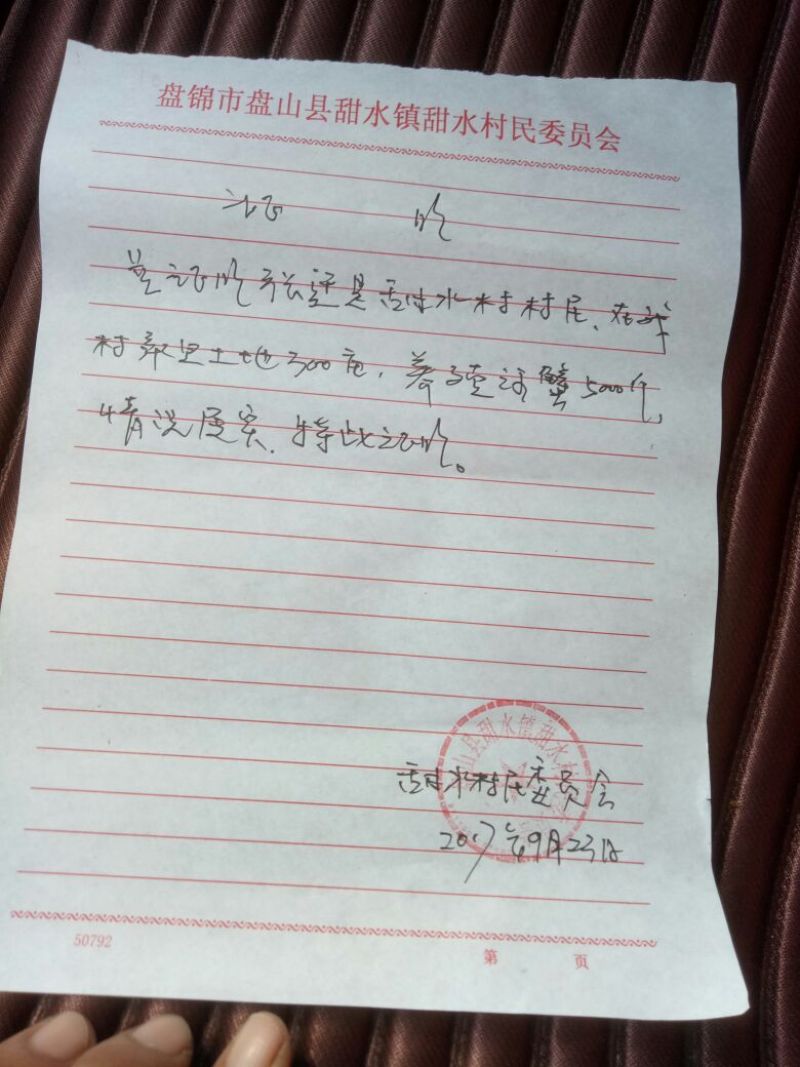 盘锦市盘山县甜水镇甜水村民委员会
证 明
兹证明 是甜水村村民、在我
村承包土地300亩,养殖河蟹5000斤,
情况属实、特此证明。
山县甜水镇甜水村
甜水村民委员会
2017年9月23日
50792
第 页